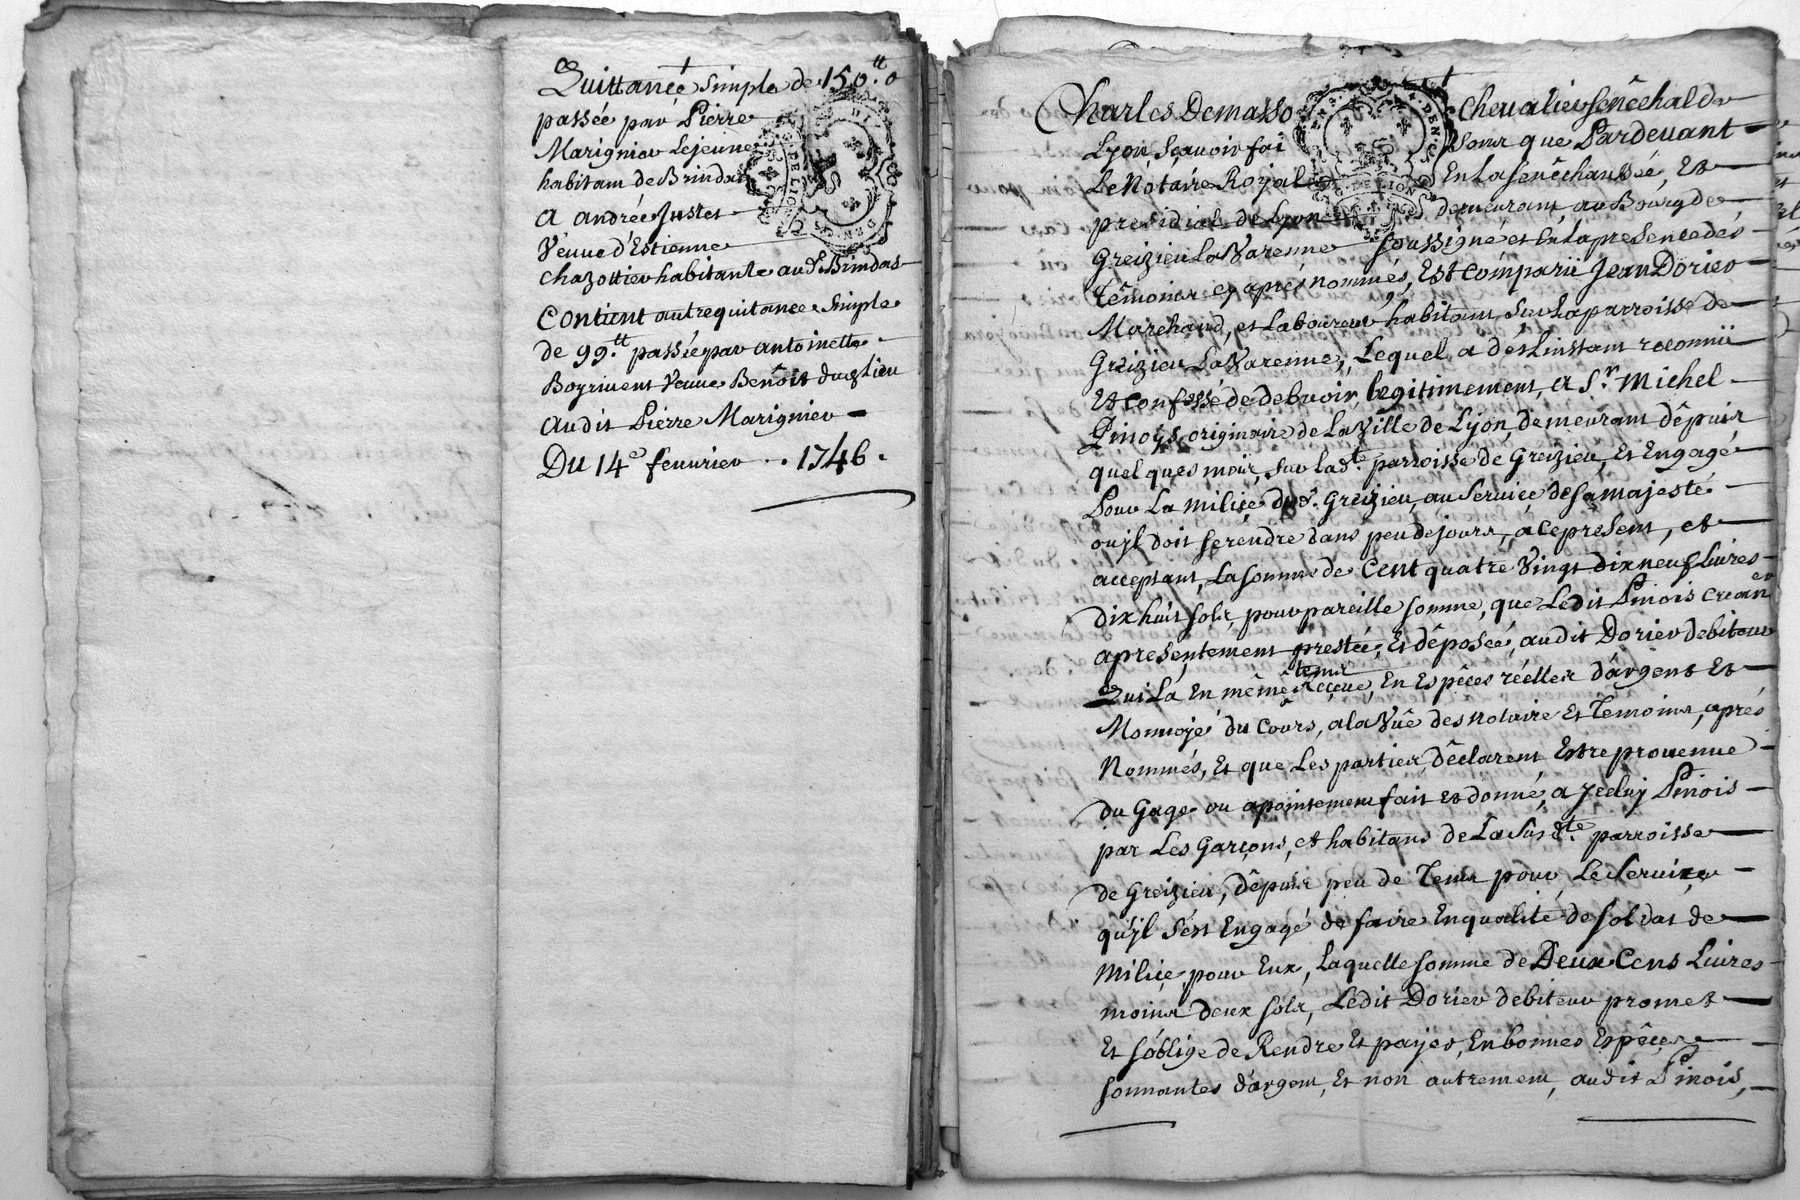 Quittance simple de 150.tt 0
passée par Pierre
Marignier Lejeune
habitant de Brindas
A andrée Justet
Veuve d'Estienne
chazottier habitante aud.t Brindas
Contient autre quitance simple
de 99.tt passée par antoinette
Boyrivent Veuve Benoît
audit Pierre Marignier
Du 14e fevurier . . 1746 .
Charles Demasso Chevalier senêchal de
Lyon sçavoir fai sons que Pardevant
Le Notaire Royal En La senêchaussée, Et
presidial de Lyon demeurant au Bourg de
Greizieu La Varenne soussigné et En La presence des
têmoins cy aprés nommés, Est comparu Jean Dorier
Marchand, et Laboureur habitant sur La parroisse de
Greizieu La Varenne, Lequel a dés Linstant reconnü
Et confessé de debvoir legitimement, a S.r Michel
Pinoys originaire de La Ville de Lyon, demeurant dêpuis
quelques mois, sur lad.te parroisse de Greizieu, Et Engagé
Pour La milice dud. Greizieu, au service de sa majesté
ou jl doit se rendre dans peu de jours, a ce present, et
acceptant, La somme de Cent quatre Vingt dix neuf Livres
dix huit sols, pour pareille somme, que Ledit Pinois crean er
a presentement prestée, Et dêposée, audit Dorier debiteur
Qui La En même tems Reçeue, En Espêces rêelles d'argent Et
Monnoyé du Cours, a la Vûe des notaire Et Têmoins, aprés
Nommés, Et que Les parties dêclarent Estre provenue
du Gage ou apointement fait et donné, a jceluy Pinois
par Les Garçons, et habitans de La Susd.te parroisse
de Greizieu, dêpuis peu de Tems pour Le Service
qu'jl s'est Engagé de faire En qualité de soldat de
Milice, pour Eux, Laquelle somme de Deux Cens Livres
moins deux sols, Ledit Dorier debiteur promet
Et s'oblige de Rendre Et payer, En bonnes Espêces
sonnantes d'argent, Et non autrement, audit Pinois,